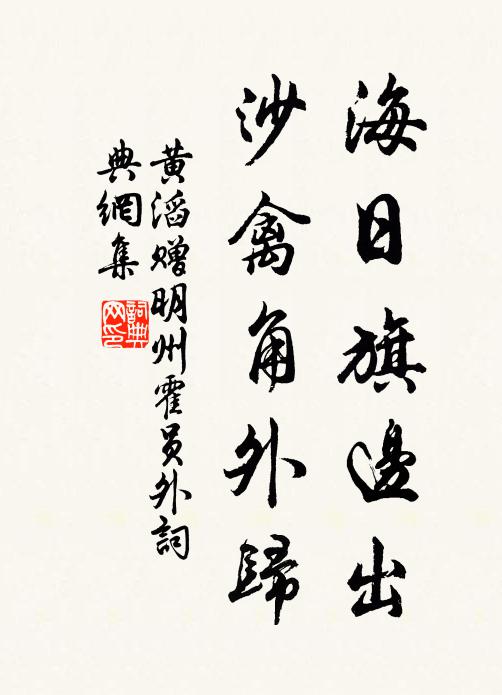 海日旗邊出
沙禽角外歸
黄滔赠明州霍员外詞
典網集
詞典
网印